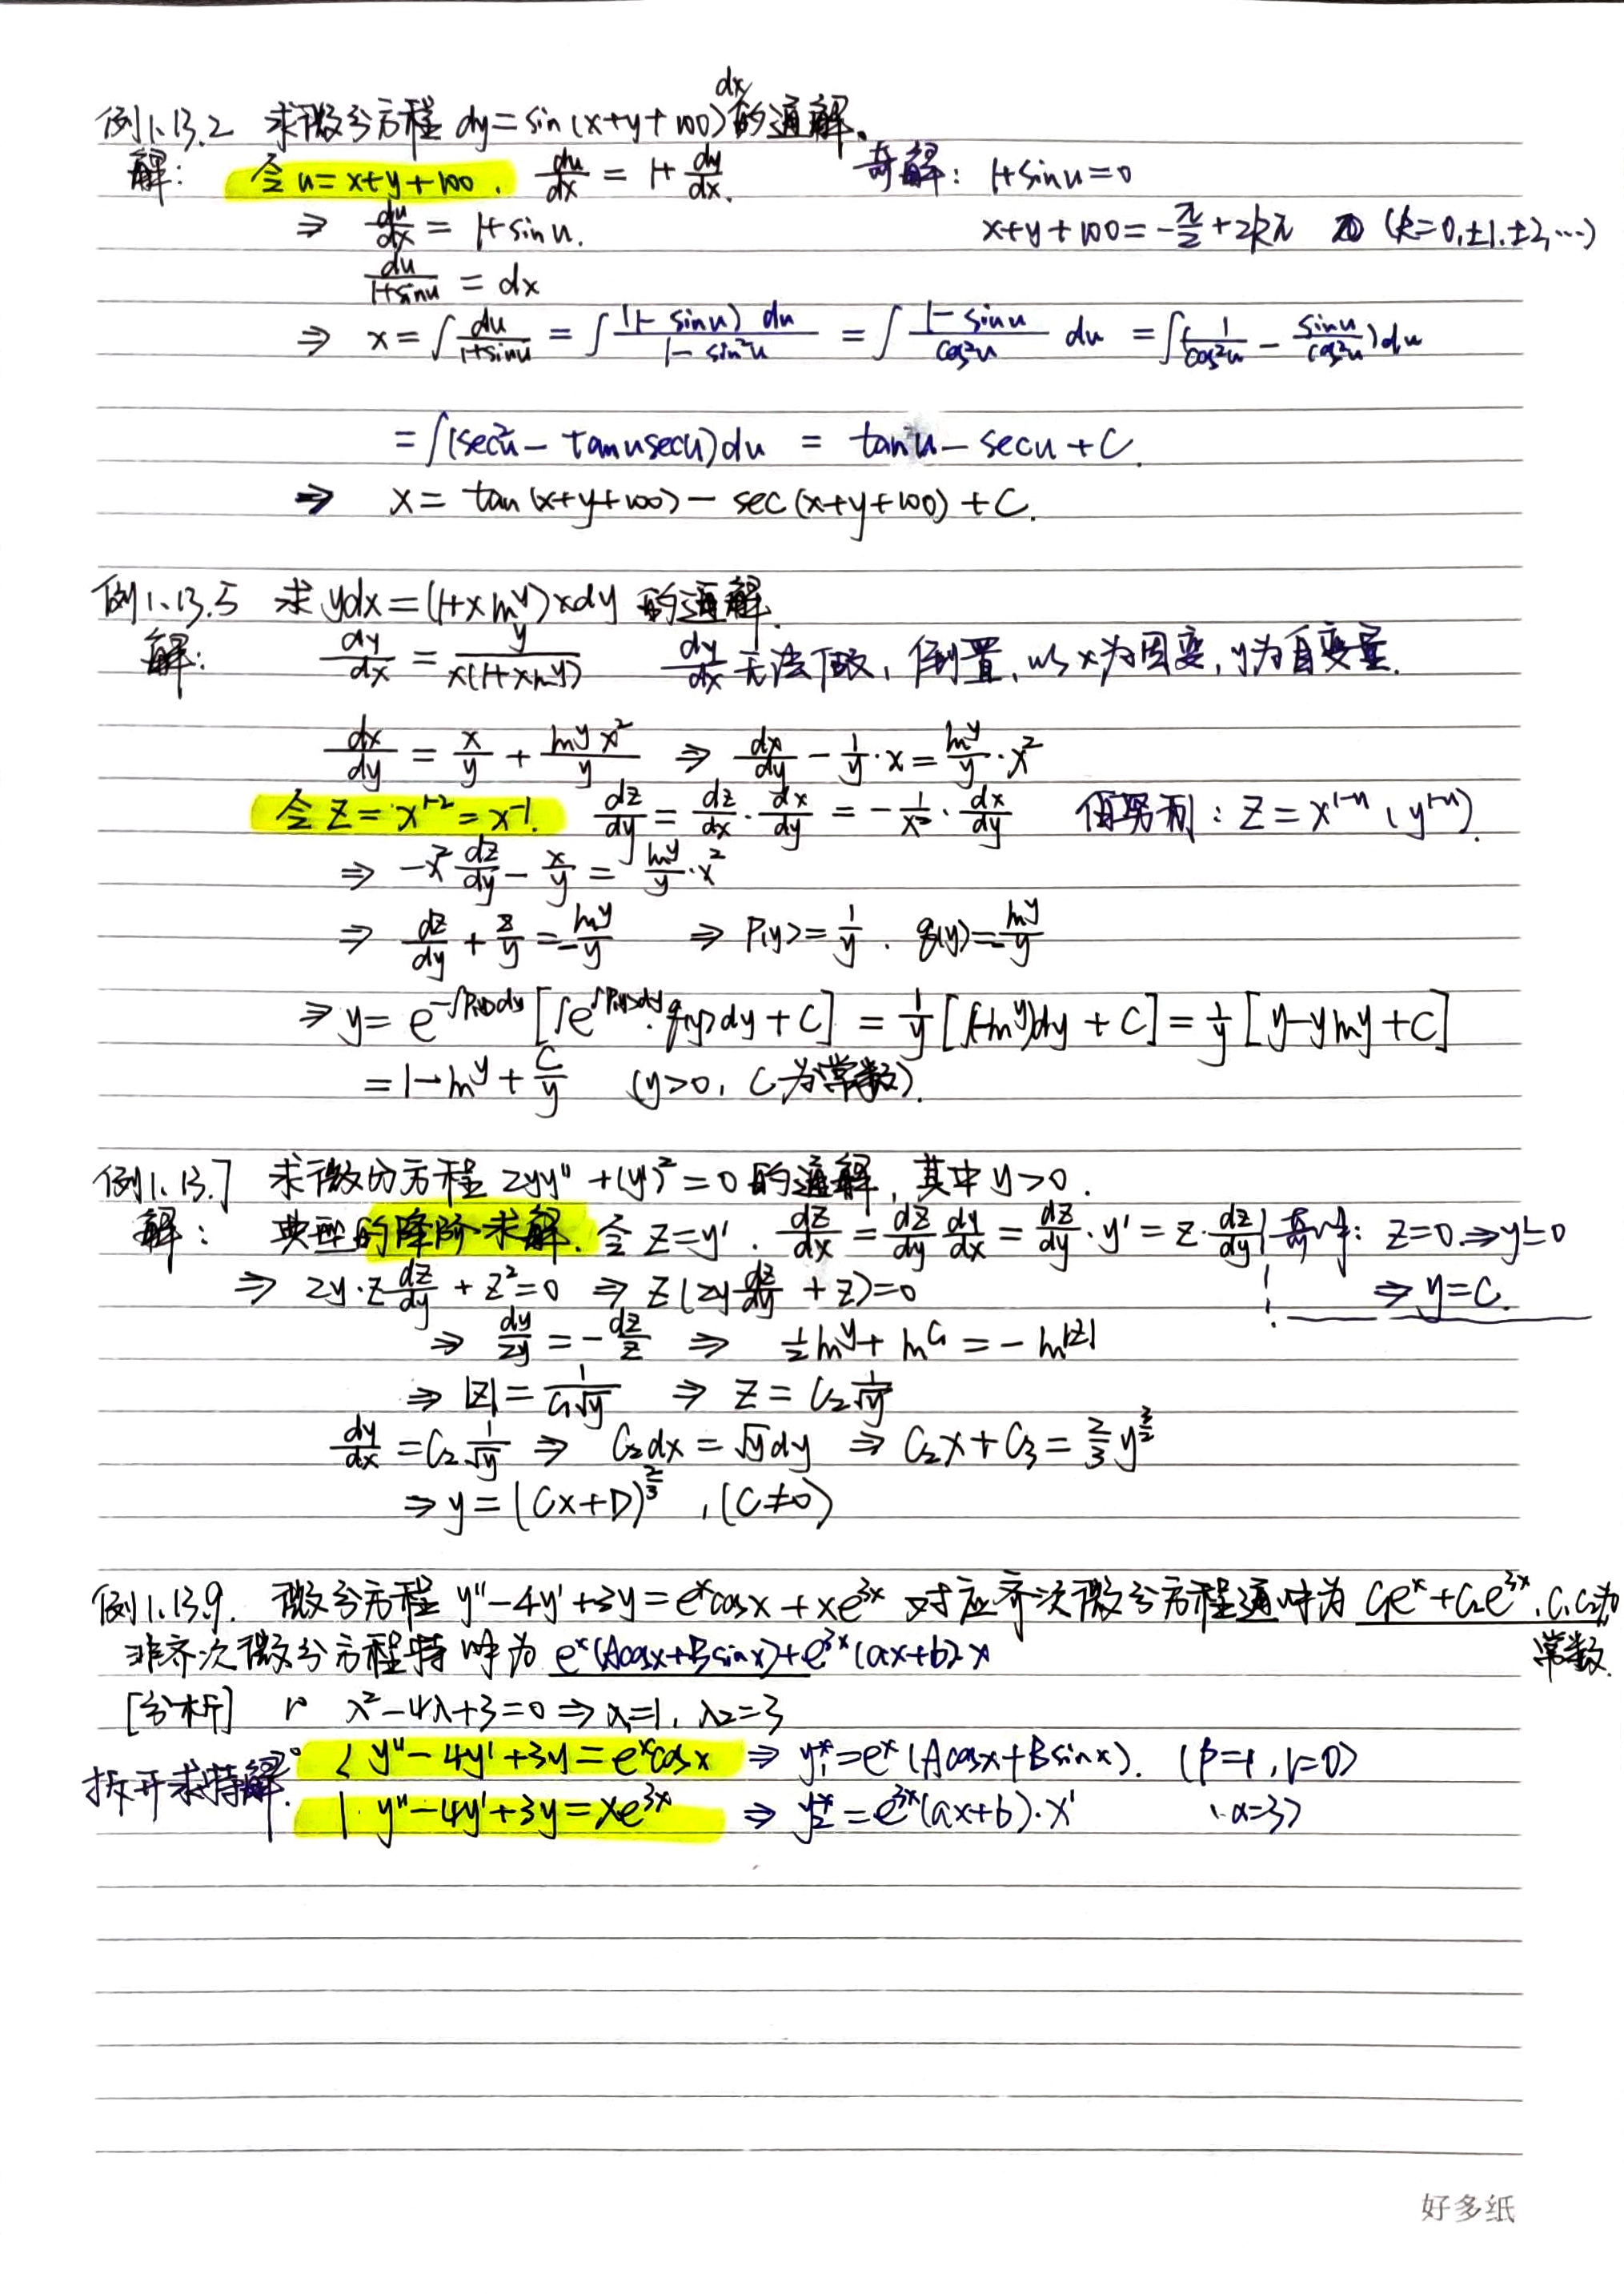 例1.13.2 求微分方程 dy=sin(x+y+100)dx的通解.
解: 令u=x+y+100. du/dx = 1+dy/dx. 奇解: 1+sinu=0
⇒ du/dx = 1+sinu. x+y+100=-π/2+2kπ (k=0,±1,±2,…)
du/(1+sinu) = dx
⇒ x=∫du/(1+sinu) = ∫(1-sinu)du/(1-sin²u) = ∫(1-sinu)/cos²u du = ∫(1/cos²u - sinu/cos²u)du
=∫(sec²u - tanusecu)du = tanu - secu + C.
⇒ x= tan(x+y+100) - sec(x+y+100) + C.
例1.13.5 求 ydx=(1+xlny)xdy 的通解.
解: dy/dx = y/(x(1+xlny)) dy/dx无法做, 倒置, 以x为因变, y为自变量.
dx/dy = x/y + lny x²/y ⇒ dx/dy - 1/y·x = lny/y·x²
令z=x^(1-2)=x^-1. dz/dy = dz/dx·dx/dy = -1/x²·dx/dy 伯努利: z=x^(1-n) (y^(1-n)).
⇒ -x² dz/dy - x/y = lny/y·x²
⇒ dz/dy + z/y = -lny/y ⇒ P(y)=1/y. q(y)=-lny/y
⇒ y= e^(-∫P(y)dy)[∫e^(∫P(y)dy)·q(y)dy + C] = 1/y[∫(-lny)dy + C] = 1/y[y-ylny+C]
= 1-lny + C/y (y>0, C为常数).
例1.13.7 求微分方程 2yy''+(y')²=0 的通解, 其中y>0.
解: 典型的降阶求解. 令z=y'. dz/dx = dz/dy dy/dx = dz/dy·y' = z·dz/dy 奇解: z=0.⇒y'=0
⇒ 2y·z dz/dy + z²=0 ⇒ z(2y dz/dy + z)=0 ⇒ y=C.
⇒ dy/2y = -dz/z ⇒ 1/2 lny + lnC₁ = -ln|z|
⇒ |z| = 1/(C₁√y) ⇒ z = C₂ 1/√y
dy/dx = C₂ 1/√y ⇒ C₂dx = √y dy ⇒ C₂x+C₃ = 2/3 y^(3/2)
⇒ y=(Cx+D)^(2/3), (C≠0)
例1.13.9. 微分方程 y''-4y'+3y=e^x cosx + xe^3x 对应齐次微分方程通解为 C₁e^x+C₂e^3x, C₁C₂为常数.
非齐次微分方程特解为 e^x(Acosx+Bsinx)+e^3x(ax+b)·x
[分析] λ²-4λ+3=0 ⇒ λ₁=1, λ₂=3
拆开求特解: { y''-4y'+3y=e^x cosx ⇒ y₁*=e^x(Acosx+Bsinx). (β=1, r=0)
y''-4y'+3y=xe^3x ⇒ y₂*=e^3x(ax+b)·x¹ (α=3)
好多纸